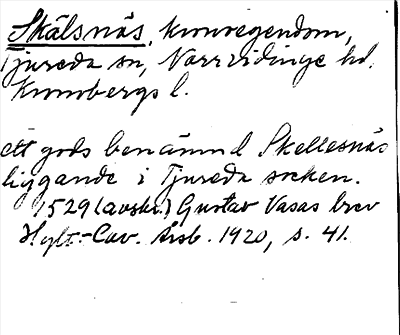 Skälsnäs, kronoegendom,
Tjureda sn, Norrvidinge hd.
Kronobergs l.
ett gods benämnd Skellesnäs
liggande i Tjureda socken.
1529 (avskr.) Gustav Vasas brev
Hylt.-Cav. Årsb. 1920, s. 41.